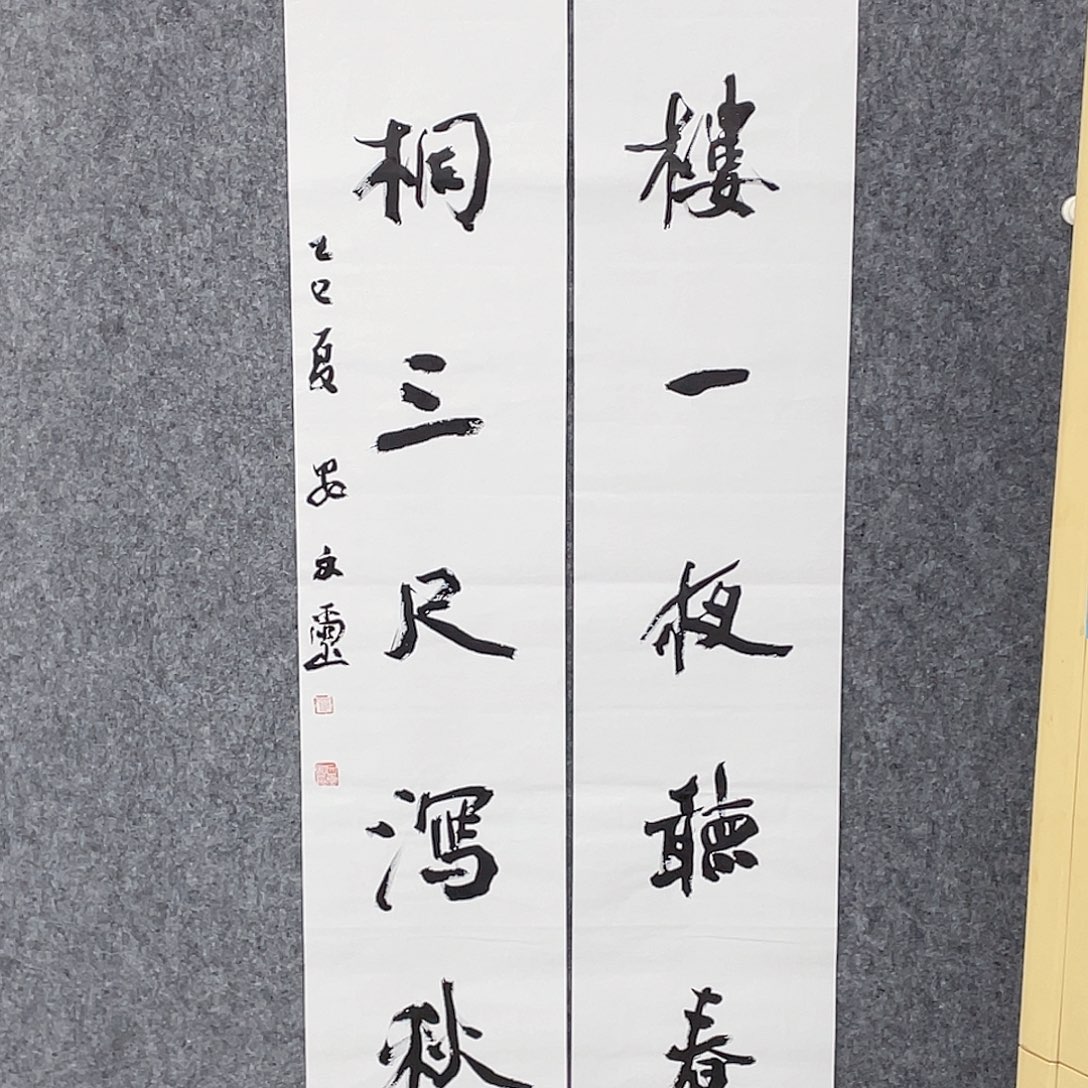 樓一夜聽春
桐三尺瀉秋
乙巳夏 晏文靈